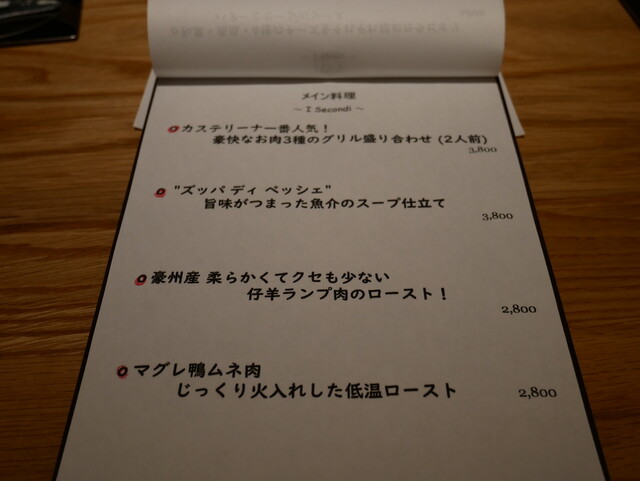 メイン料理
～ I Secondi ～
カステリーナ一番人気！
豪快なお肉3種のグリル盛り合わせ (2人前)
3,800
"ズッパ ディ ペッシェ"
旨味がつまった魚介のスープ仕立て
3,800
豪州産 柔らかくてクセも少ない
仔羊ランプ肉のロースト！
2,800
マグレ鴨ムネ肉
じっくり火入れした低温ロースト
2,800